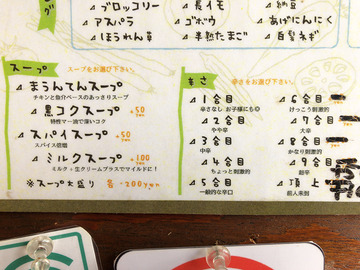 ブロッコリー
長イモ
納豆
アスパラ
ゴボウ
あげにんにく
ほうれん草
半熟たまご
白髪ネギ
スープ
スープをお選び下さい。
まうんてんスープ
チキンと魚介ベースのあっさりスープ
黒コクスープ +50yen
特性マー油で深いコク
スパイスープ +50yen
スパイス倍増
ミルクスープ +100yen
ミルク+生クリームプラスでマイルドに!
※スープ大盛り 各-200yen
辛さ
辛さをお選び下さい。
1合目
辛さなし お子様にも
2合目
やや辛
3合目
中辛
4合目
ちょっと刺激的
5合目
一般的な辛口
6合目
けっこう刺激的
7合目
大辛
8合目
かなり刺激的
9合目
超辛
頂上
前人未到